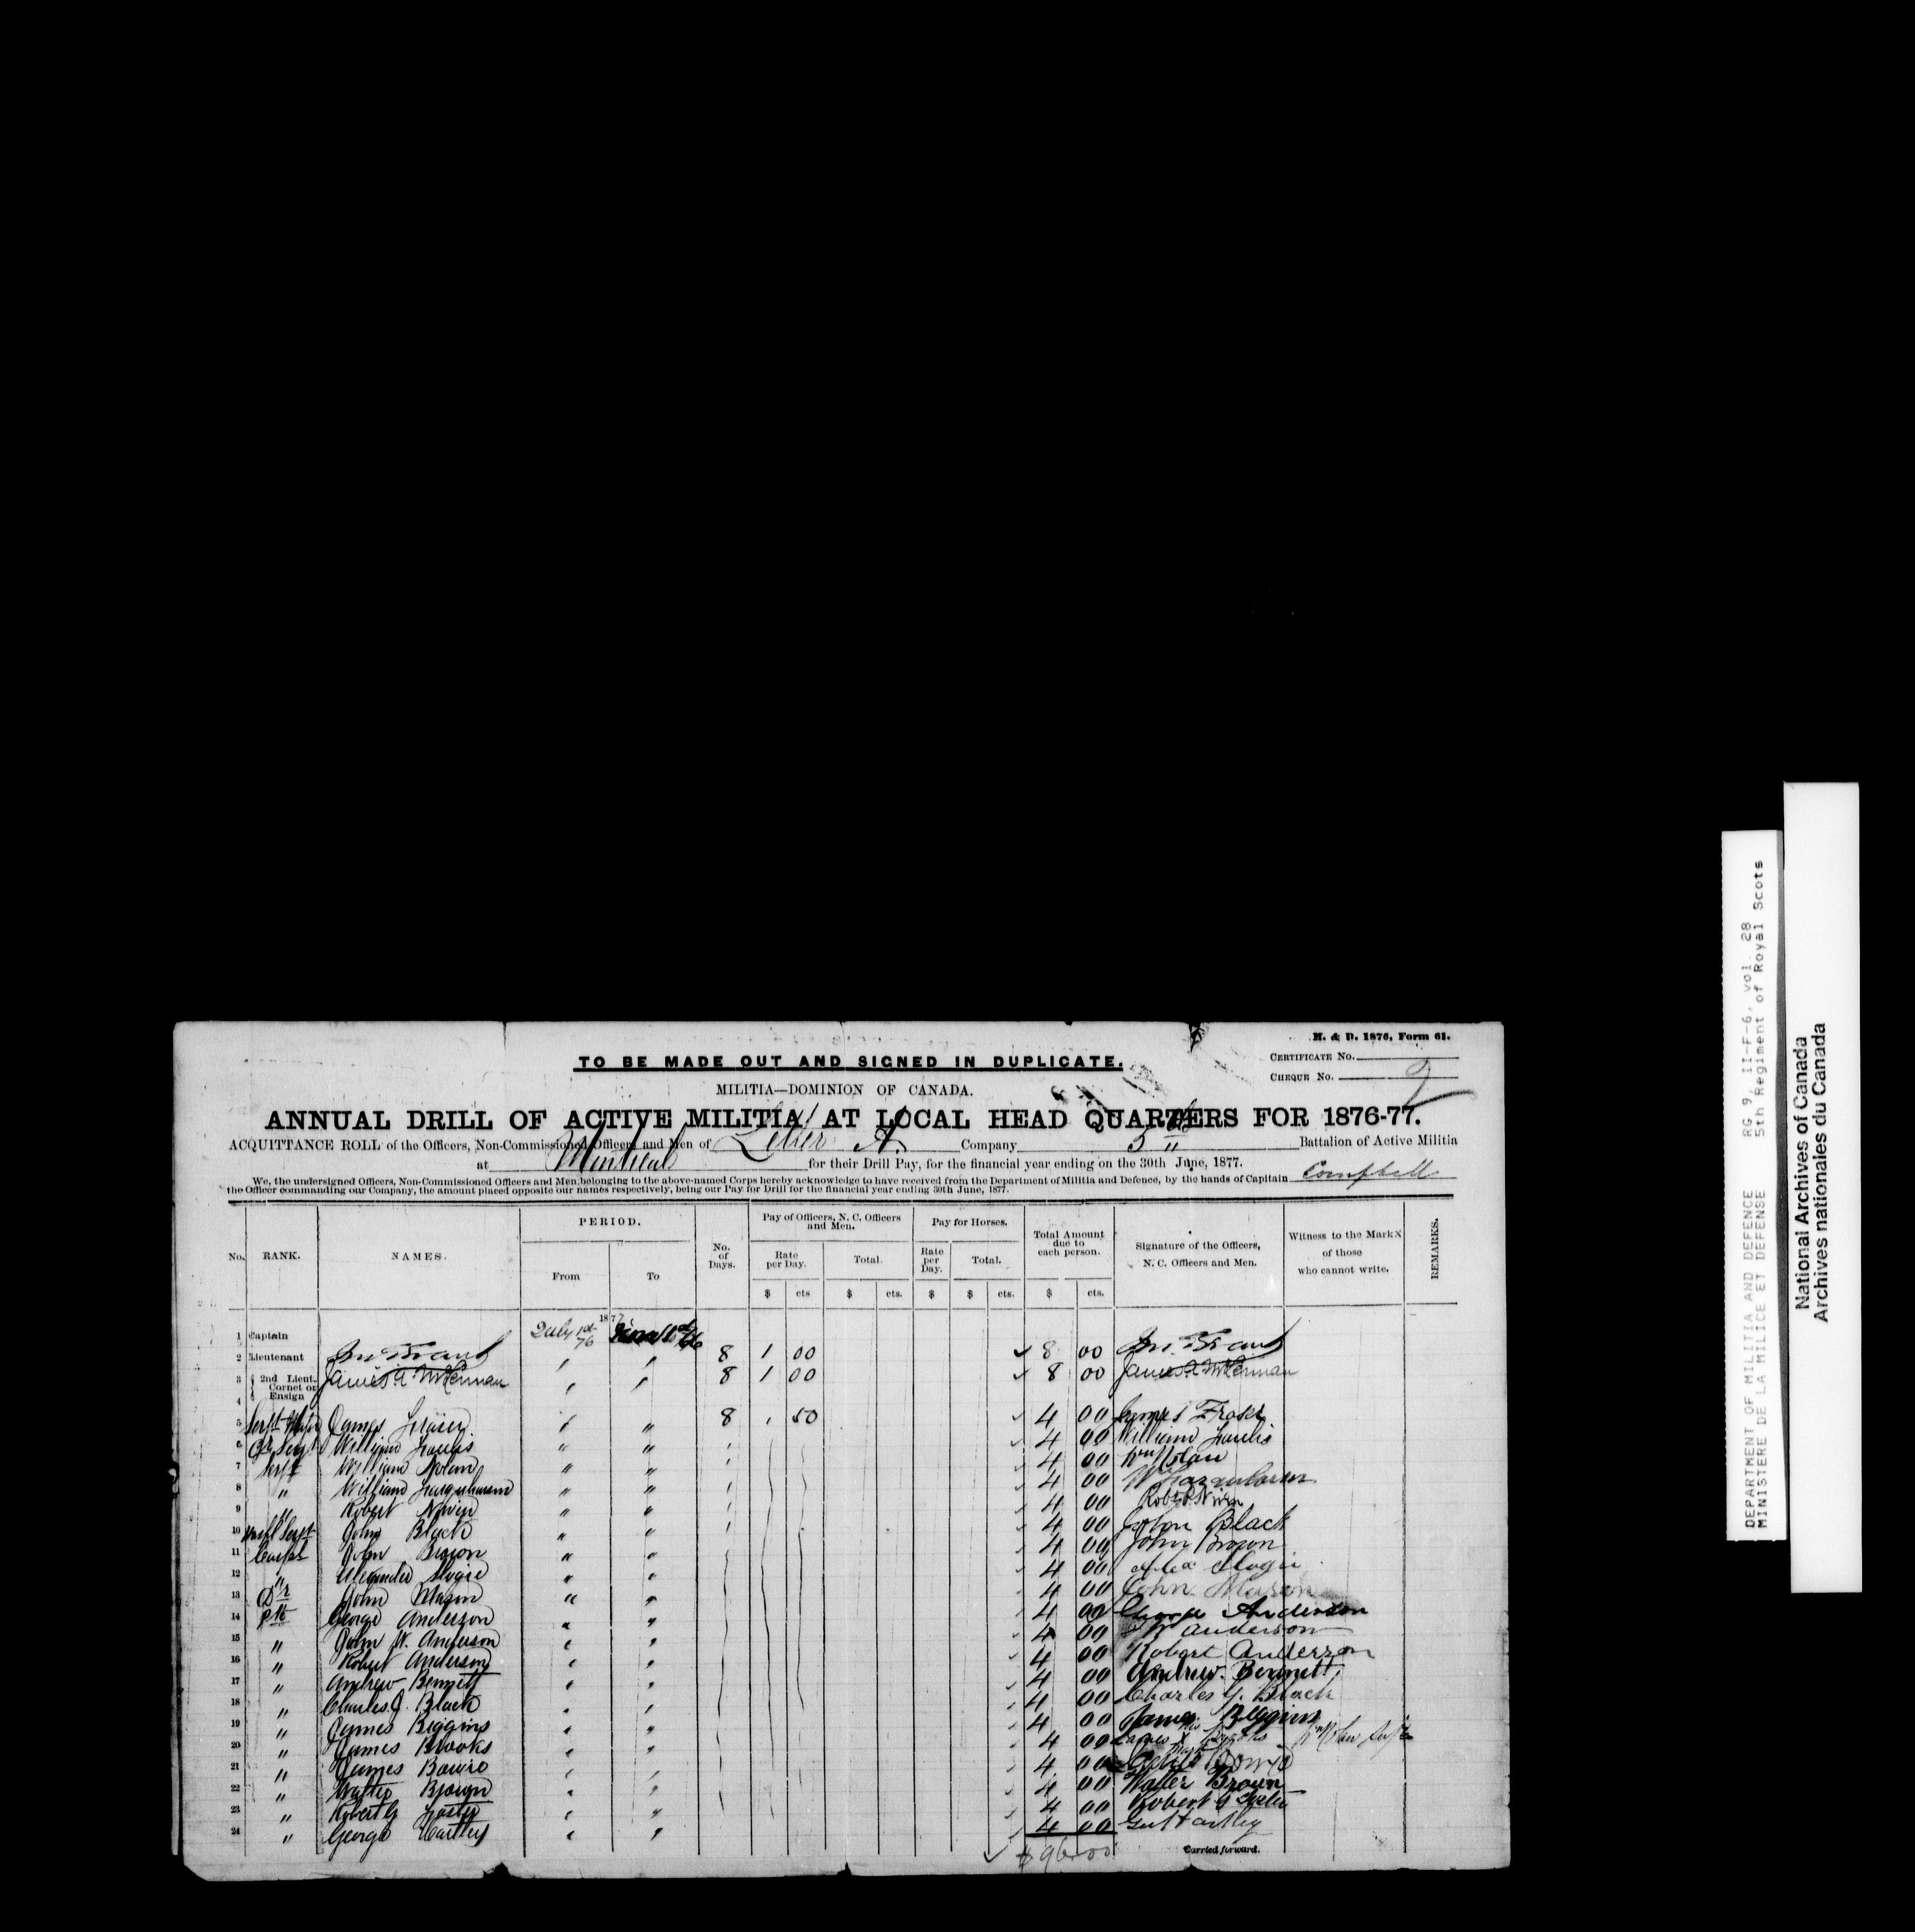 M. & D. 1876, Form 61.
TO BE MADE OUT AND SIGNED IN DUPLICATE.
CERTIFICATE No.
CHEQUE No. 2
MILITIA—DOMINION OF CANADA.
ANNUAL DRILL OF ACTIVE MILITIA AT LOCAL HEAD QUARTERS FOR 1876-77.
ACQUITTANCE ROLL of the Officers, Non-Commissioned Officers and Men of Letter A. Company 5th Battalion of Active Militia
at Montreal for their Drill Pay, for the financial year ending on the 30th June, 1877.
We, the undersigned Officers, Non-Commissioned Officers and Men belonging to the above-named Corps hereby acknowledge to have received from the Department of Militia and Defence, by the hands of Captain Campbell
the Officer commanding our Company, the amount placed opposite our names respectively, being our Pay for Drill for the financial year ending 30th June, 1877.
No. RANK. NAMES. PERIOD. From To No. of Days. Pay of Officers, N. C. Officers and Men. Rate per Day. Total. Pay for Horses. Rate per Day. Total. Total Amount due to each person. Signature of the Officers, N. C. Officers and Men. Witness to the Mark X of those who cannot write. REMARKS.
$ cts $ cts. $ $ cts. $ cts.
1 Captain July 1st 76 187
2 Lieutenant 8 1 00 8 00
3 2nd Lieut. Cornet or Ensign James 8 1 00 8 00 James
4
5 Sergt Major James Fraser 8 . 50 4 00 James Fraser
6 Qr Sergt William 4 00 William
7 Sergt William Nolan 4 00 Wm Nolan
8 " William Farquharson 4 00 W Farquharson
9 " Robert Niven 4 00 Robt Niven
10 Sergt John Black 4 00 John Black
11 Corpl John Brown 4 00 John Brown
12 " Alexander Mogie 4 00 Alex Mogie
13 Dr John Mason 4 00 John Mason
14 Pte George Anderson 4 00 George Anderson
15 " John W. Anderson 4 00 J W Anderson
16 " Robert Anderson 4 00 Robert Anderson
17 " Andrew Bennett 4 00 Andrew Bennett
18 " Charles J. Black 4 00 Charles J. Black
19 " James Biggins 4 00 James Biggins
20 " James Brooks 4 00 James his X mark Brooks Wm Nolan Sergt
21 " James Bowie 4 00 Bowie
22 " Walter Brown 4 00 Walter Brown
23 " Robert G 4 00 Robert G
24 " George Hartley 4 00 Geo Hartley
$96.00
Carried forward.
DEPARTMENT OF MILITIA AND DEFENCE RG 9, II-F-6, vol. 28
MINISTERE DE LA MILICE ET DEFENSE 5th Regiment of Royal Scots
National Archives of Canada
Archives nationales du Canada